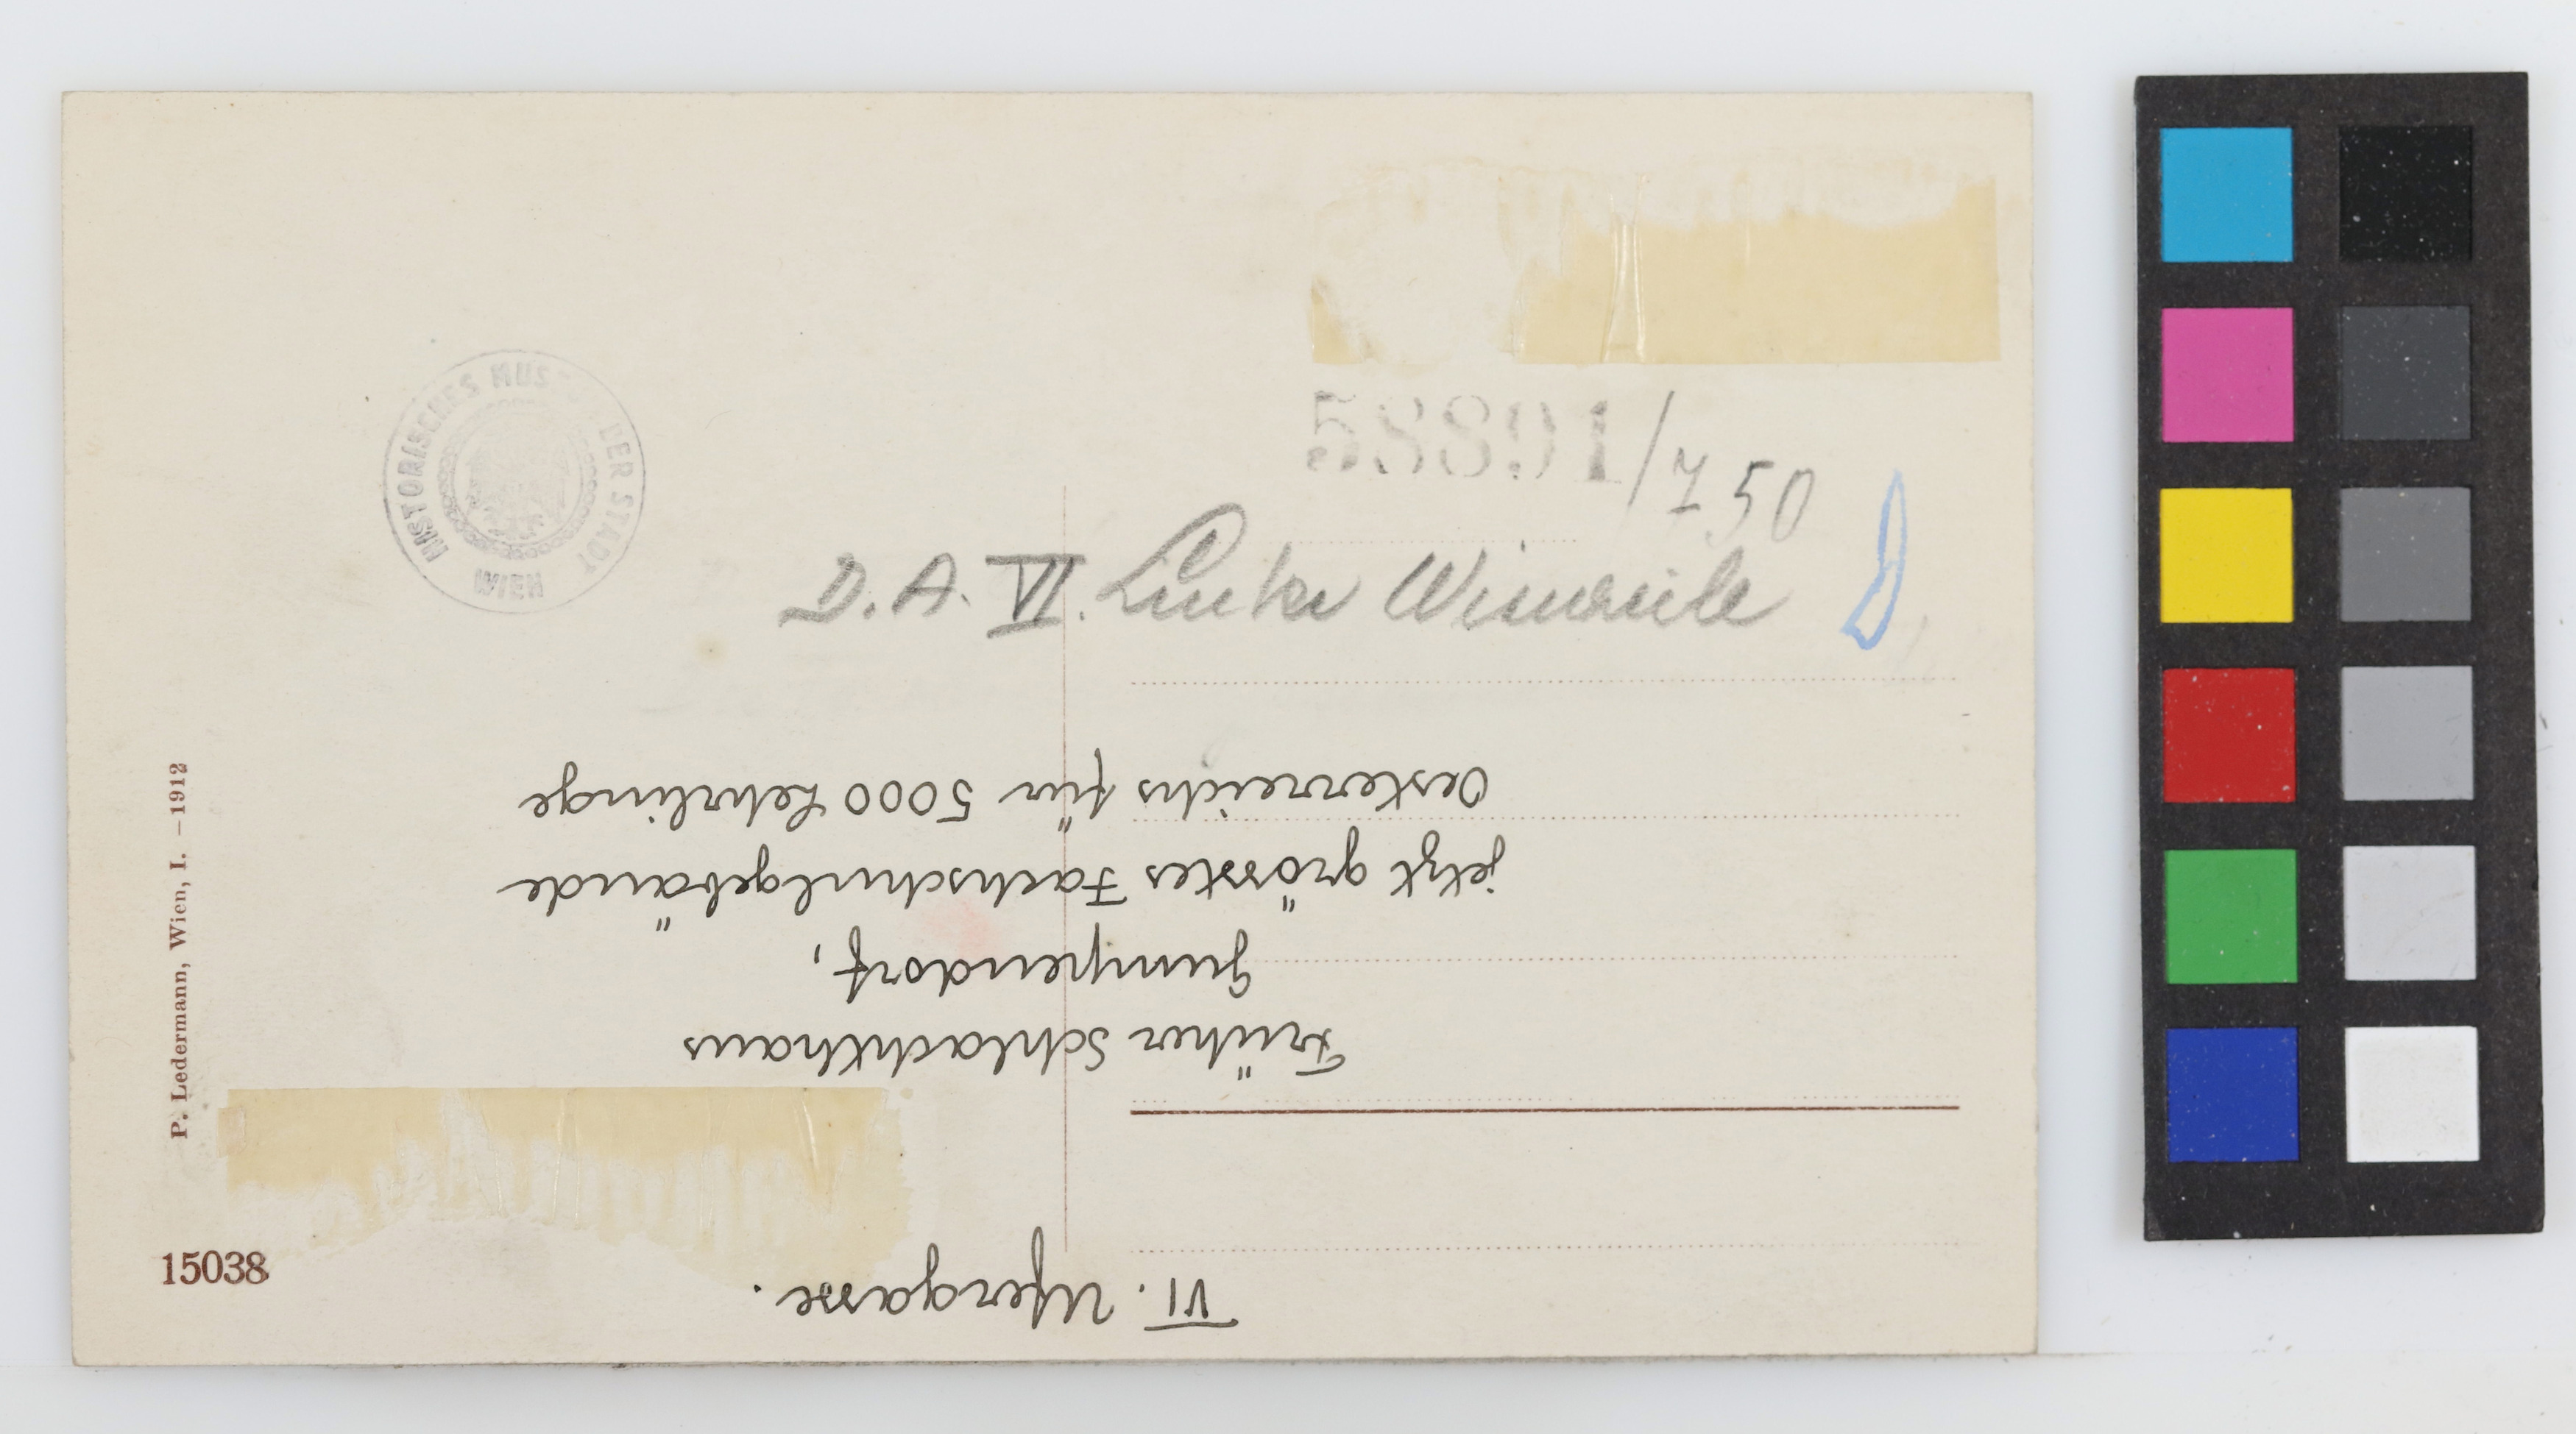 HISTORISCHES MUS DER STADT
WIEN
58891/750
D. A. VI. Linke Wienzeile
VI. Ufergasse.
Früher Schlachthaus
Gumpendorf,
jetzt grösstes Fachschulgebäude
Oesterreichs für 5000 Lehrlinge
P. Ledermann, Wien, I. – 1912
15038